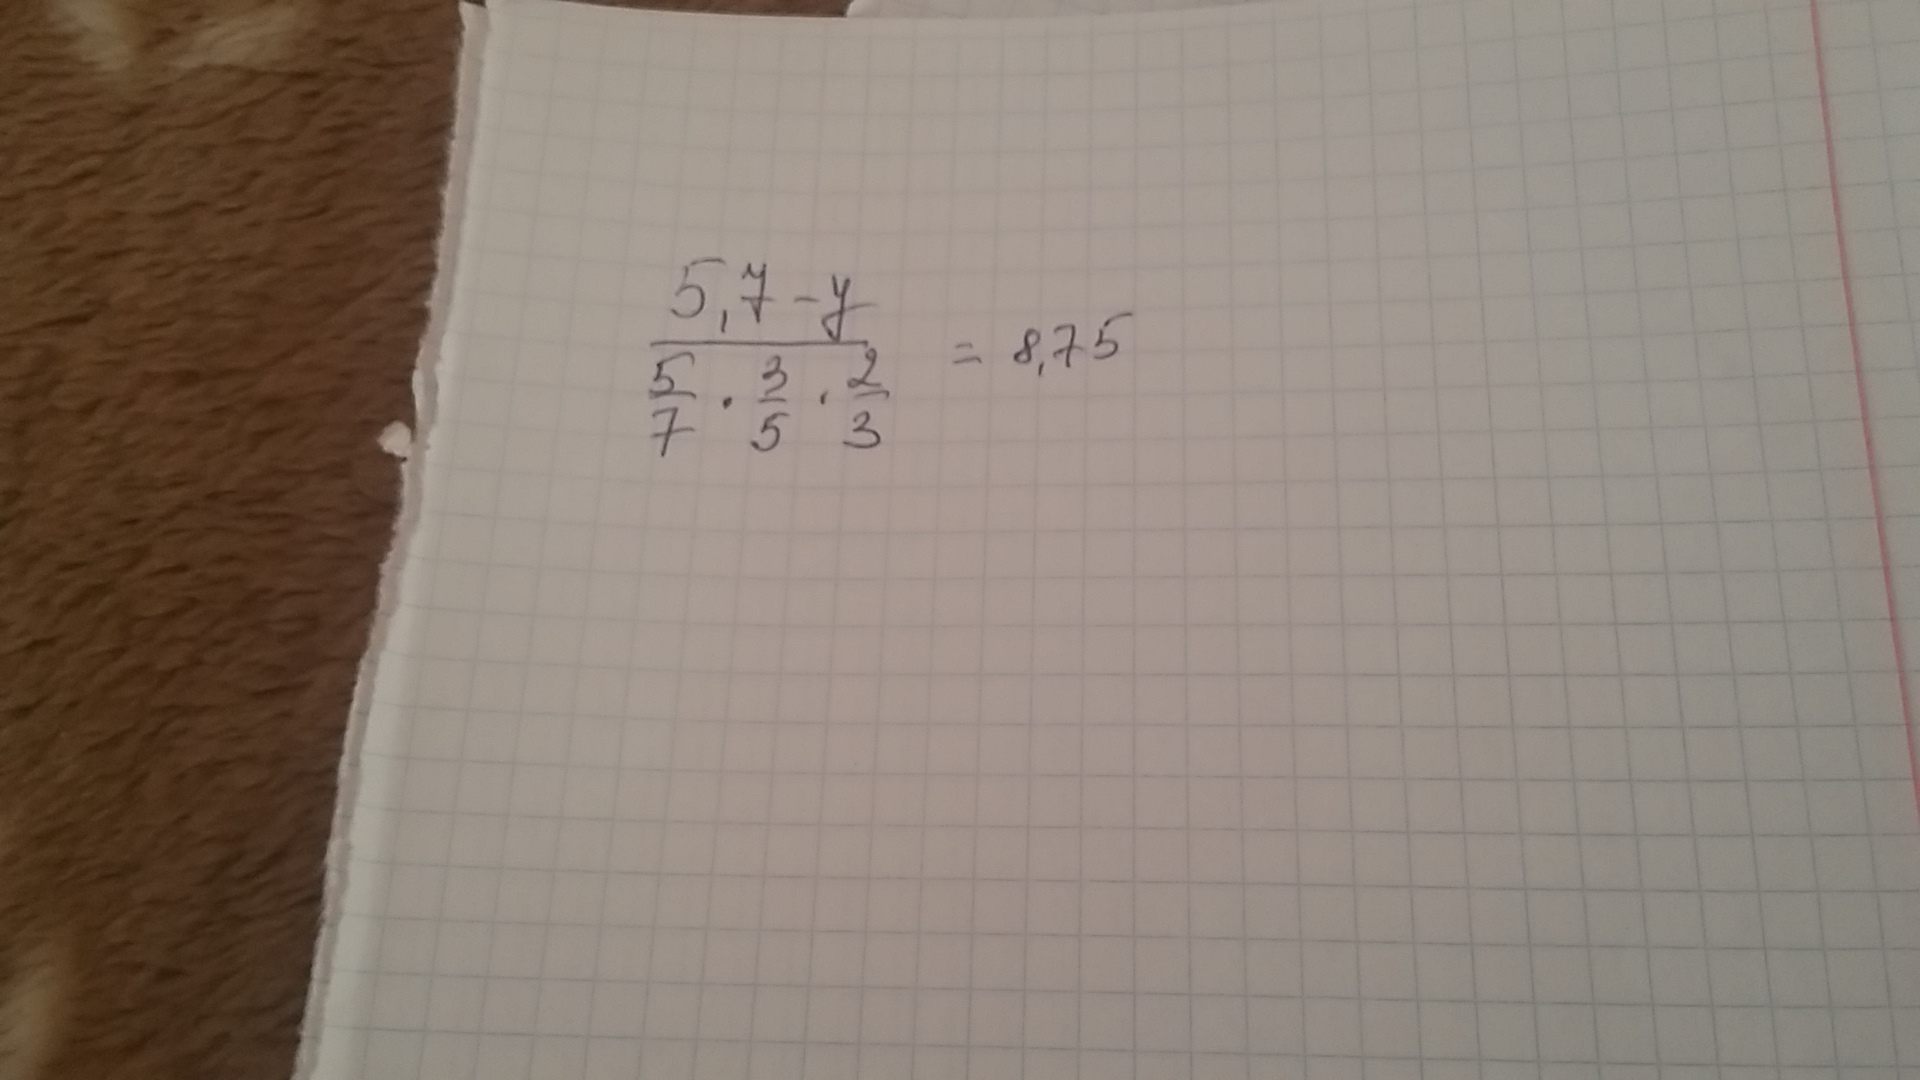 5,7 - y
5/7 · 3/5 · 2/3 = 8,75